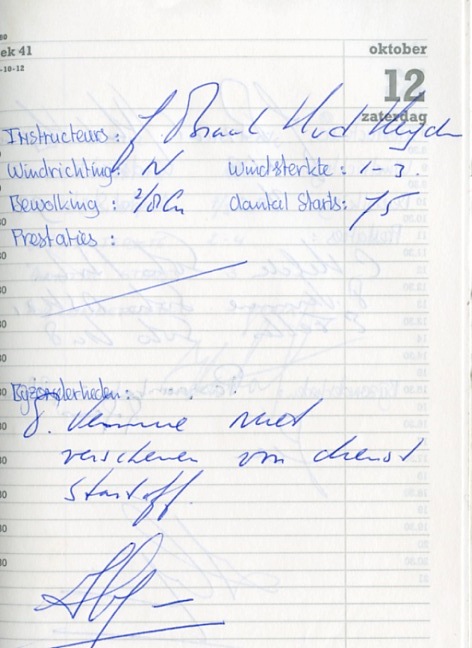 ek 41
oktober
-10-12
12
zaterdag
Instructeurs: J Braak
Windrichting: N Windsterkte: 1-3.
Bewolking: Aantal Starts: 75
Prestaties:
Bijzonderheden:
J. niet
verschenen voor dienst
Startoff.